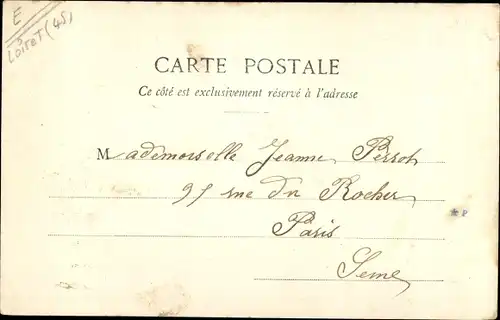 E
Loiret (45)
CARTE POSTALE
Ce côté est exclusivement réservé à l'adresse
Mademoiselle Jeanne Perrot
95 rue du Rocher
Paris
Seine